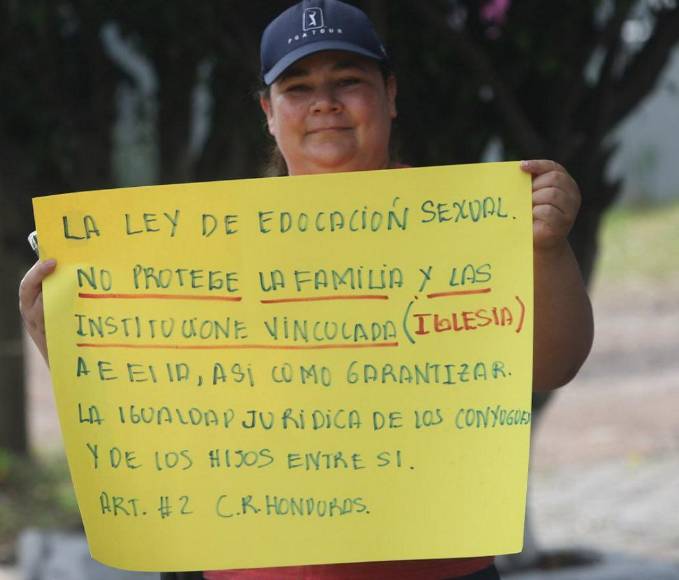 PGA TOUR
LA LEY DE EDOCACIÓN SEXUAL.
NO PROTEGE LA FAMILIA Y LAS
INSTITUCIONE VINCOLADA (IGLESIA)
A E EllA, ASi COMO GARANTIZAR.
LA IGUALDAD JURIDICA DE LOS CONYUGUES
Y DE LOS HIJOS ENTRE SI.
ART. #2 C.R. HONDURAS.